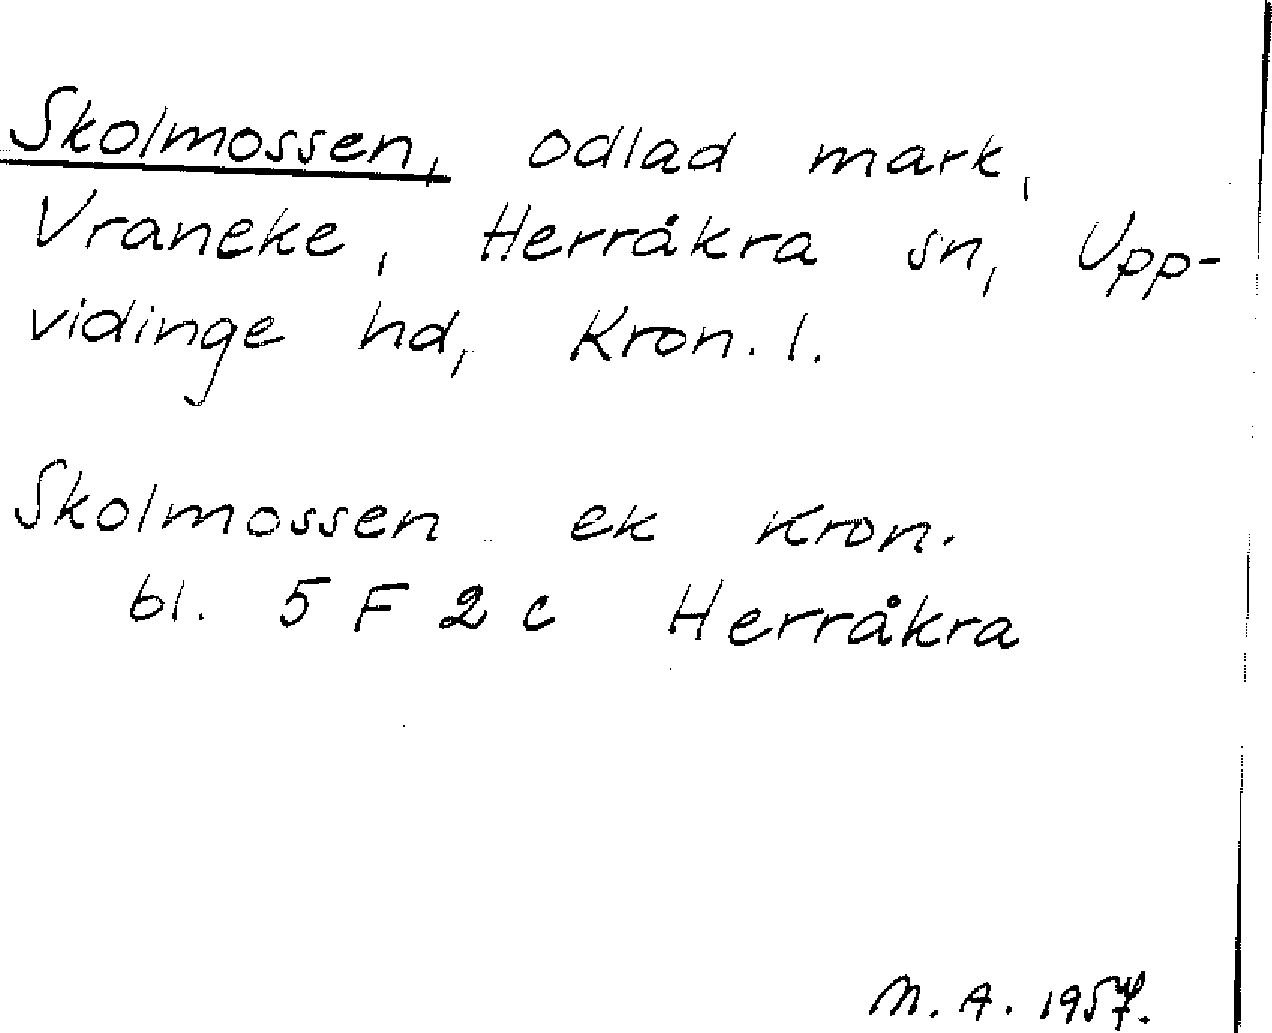 Skolmossen, odlad mark,
Vraneke, Herråkra sn, Upp-
vidinge hd, Kron. l.
Skolmossen ek Kron.
bl. 5 F 2 c Herråkra
M. A. 1957.